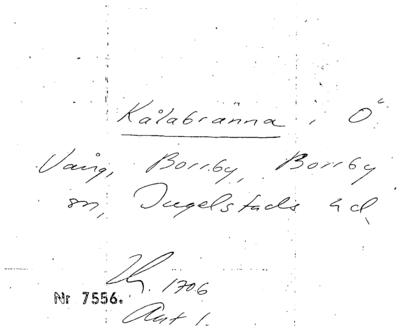 Kålabränna i Ö
Vång, Borrby, Borrby
sn, Ingelstads hd
1706
Nr 7556.
Akt 1.